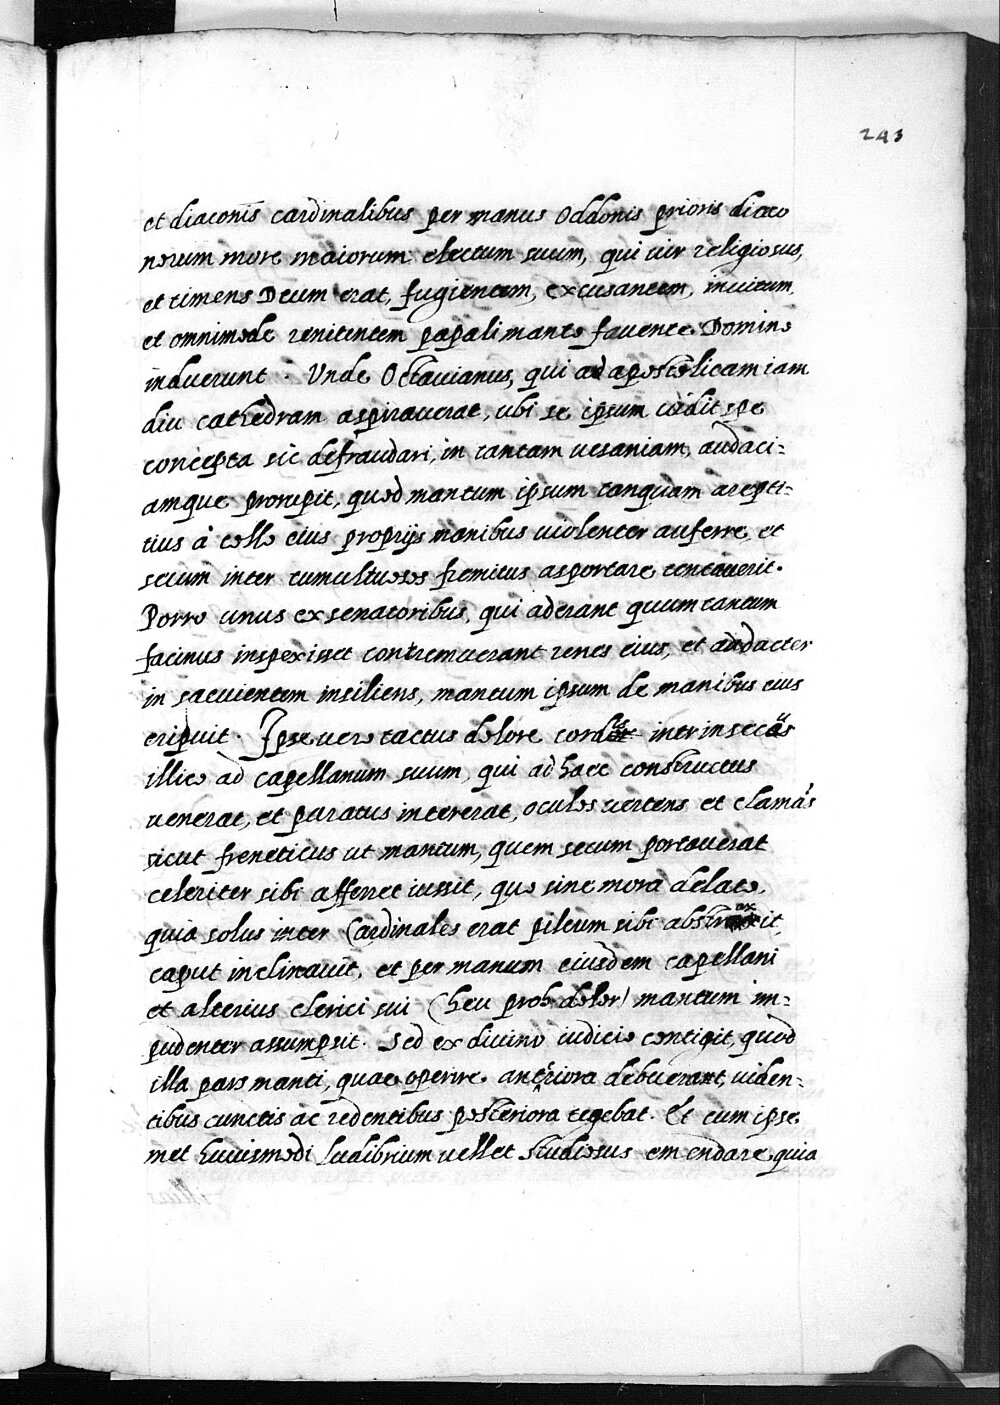 243
et diaconis cardinalibus per manus Oddonis prioris diaco
norum more maiorum electum suum, qui uir religiosus,
et timens Deum erat, fugientem, excusantem, inuitum
et omnimode renitentem papali manto fauente Domino
induerunt. Vnde Octauianus, qui ad apostolicam iam
diu cathedram aspirauerat, ubi se ipsum uidit spe
concepta sic defraudari, in tantam uesaniam, audaci-
amque prorupit, quod mantum ipsum tanquam arepti-
tius à collo eius proprijs manibus uiolenter auferre, et
secum inter tumultuosos fremitus asportare tentauerit.
Porro unus ex senatoribus, qui aderant quum tantum
facinus inspexisset contremuerant renes eius, et audacter
in saeuientem insiliens, mantum ipsum de manibus eius
eripuit. Ipse uero tactus dolore cordis intrinsecus
illico ad capellanum suum, qui ad haec constructus
uenerat, et paratus intererat, oculos uertens et clamās
sicut freneticus ut mantum, quem secum portauerat
celeriter sibi afferret iussit, quo sine mora delato,
quia solus inter Cardinales erat pileum sibi abstraxit,
caput inclinauit, et per manum eiusdem capellani
et alterius clerici sui (heu proh dolor) mantum im-
pudenter assumpsit. Sed ex diuino iudicio contigit, quod
illa pars manti, quae operire anteriora debuerant, uiden-
tibus cunctis ac redentibus posteriora tegebat. Et cum ipse
met huiusmodi ludibrium uellet studiosus emendare, quia